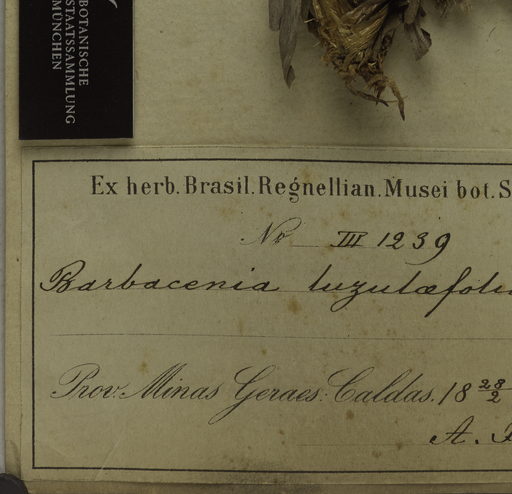 BOTANISCHE
STAATSSAMMLUNG
MÜNCHEN
Ex herb. Brasil. Regnellian. Musei bot. S
No III 1239
Barbacenia luzulæfoli
Prov. Minas Geraes: Caldas. 18 28/2
A.